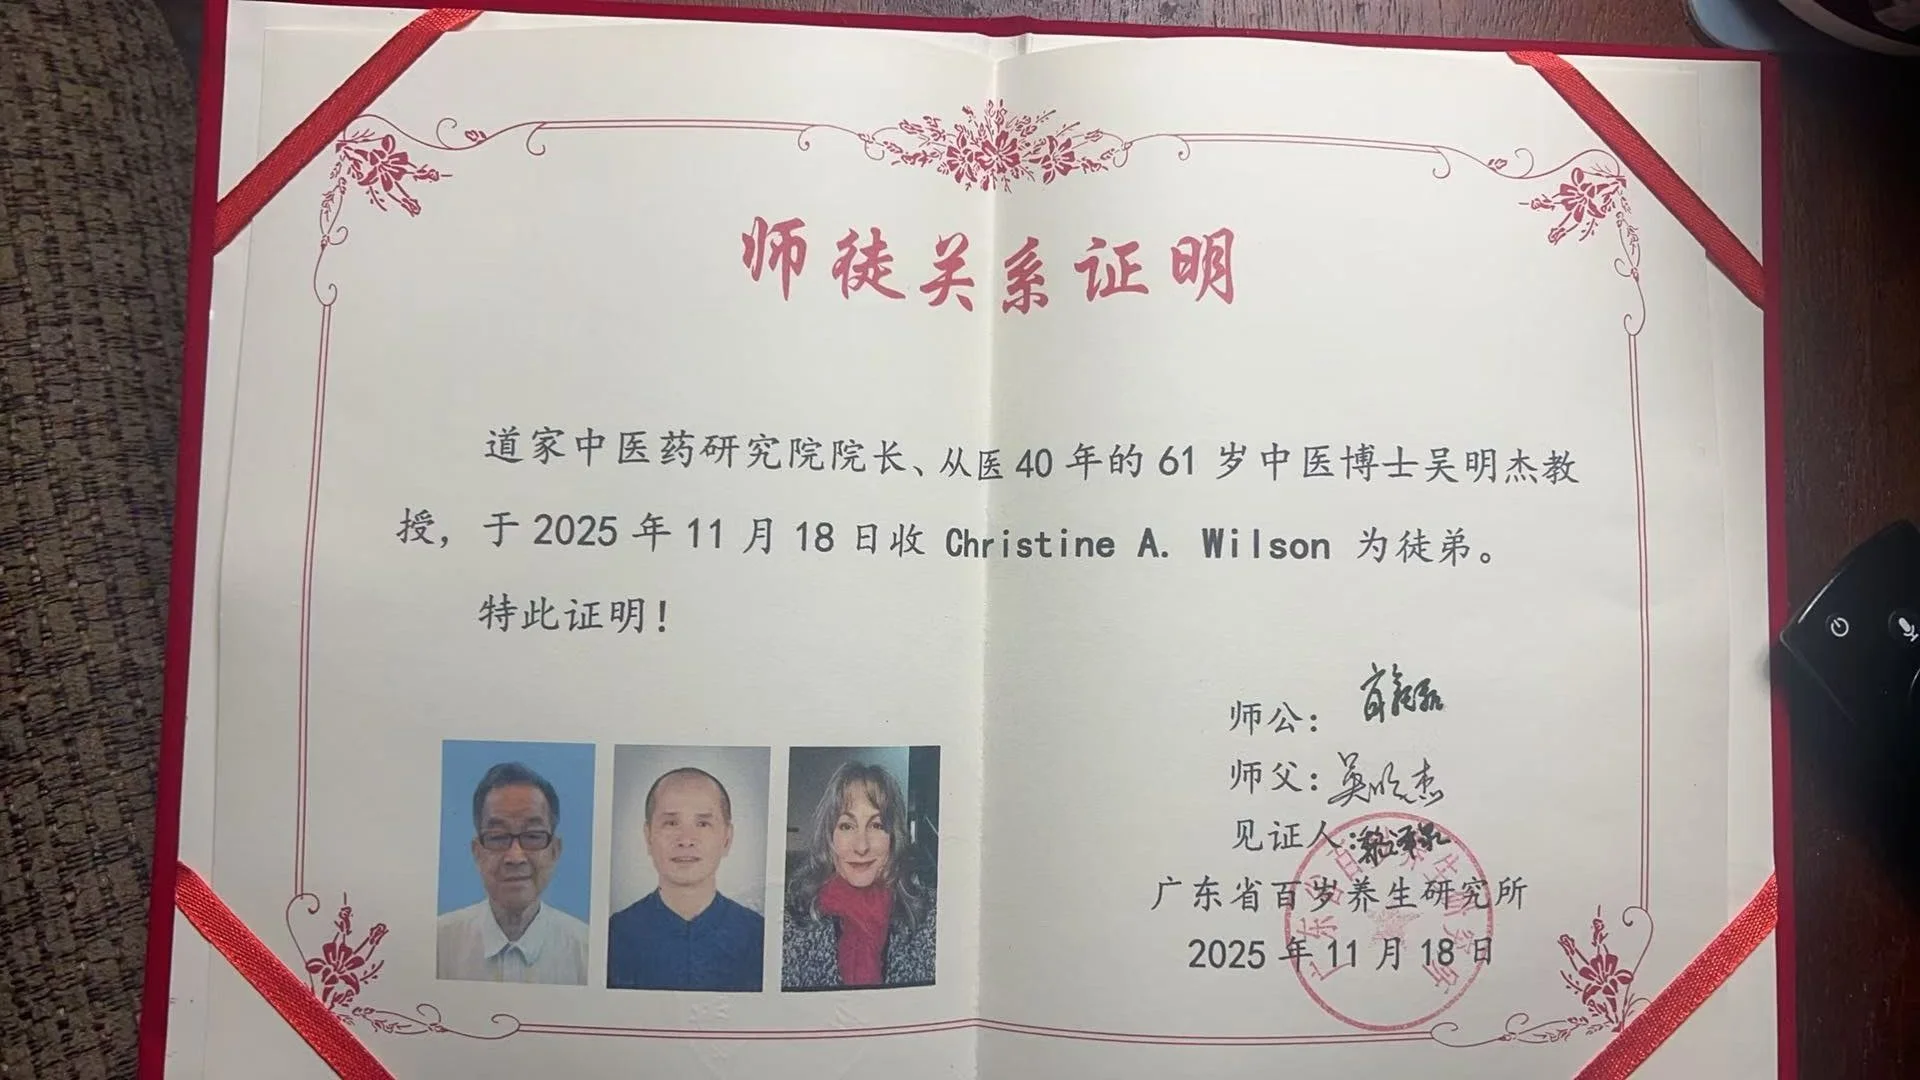 师徒关系证明
道家中医药研究院院长、从医40年的61岁中医博士吴明杰教
授，于2025年11月18日收 Christine A. Wilson 为徒弟。
特此证明！
师公：
师父：吴明杰
见证人：
广东省百岁养生研究所
2025年11月18日